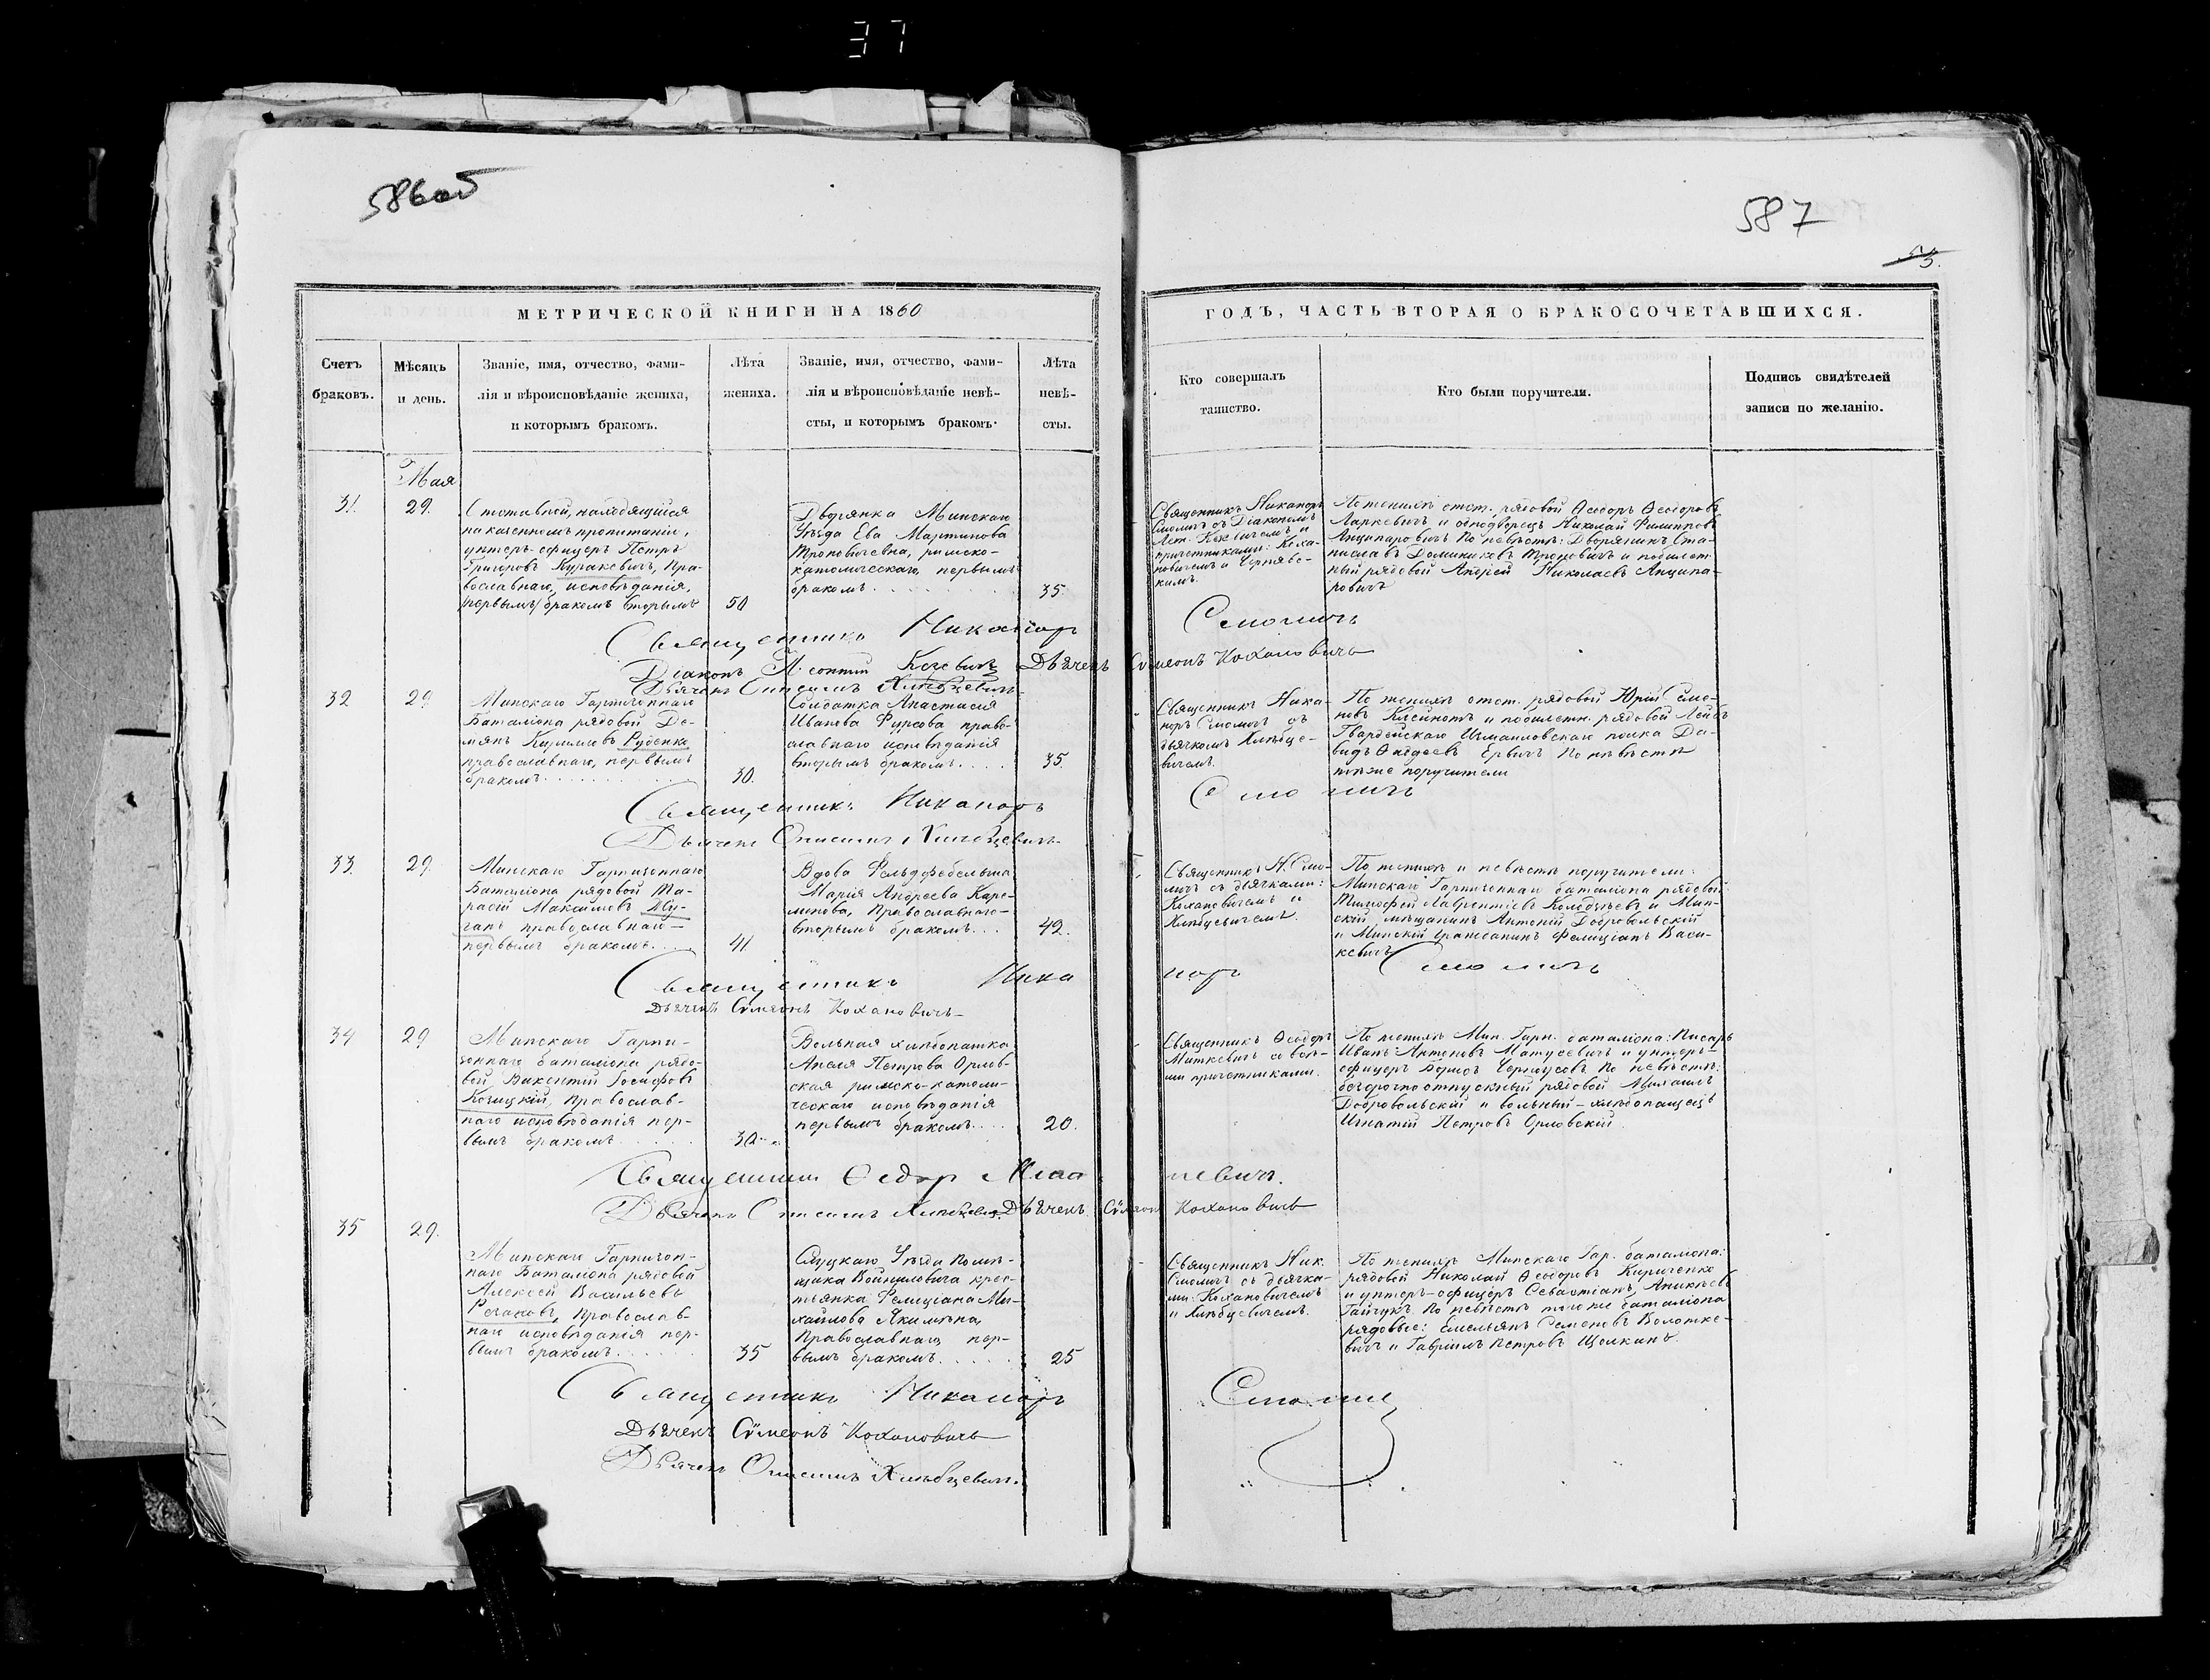 37
586об
587
МЕТРИЧЕСКОЙ КНИГИ НА 1860
ГОДЪ, ЧАСТЬ ВТОРАЯ О БРАКОСОЧЕТАВШИХСЯ.
Счетъ
браковъ.
Мѣсяцъ
и день.
Званіе, имя, отчество, фами-
лія и вѣроисповѣданіе жениха,
и которымъ бракомъ.
Лѣта
жениха.
Званіе, имя, отчество, фами-
лія и вѣроисповѣданіе невѣ-
сты, и которымъ бракомъ.
Лѣта
невѣ-
сты.
Кто совершалъ
таинство.
Кто были поручители.
Подпись свидѣтелей
записи по желанію.
Мая
31.
29.
Отставной, находящійся
на казенномъ пропитаніи,
унтеръ-офицеръ Петръ
Григоровъ Куракевичъ, Пра-
вославнаго, исповѣданія,
первымъ бракомъ вторымъ
50
Дворянка Минскаго
Уѣзда Ева Мартинова
Троповичевна, римско-
католическаго, первымъ
бракомъ
35.
Священникъ Никаноръ
Смоличъ съ Діакономъ
Леп. и
причетниками: Коха-
новичемъ и Чернявс-
кимъ.
По женихѣ отст. рядовой Ѳеодоръ Ѳеодоровъ
Ларкевичъ и однодворецъ Николай Филиповъ
Анципаровичъ По невѣстѣ: Дворянинъ Ста-
ниславъ Доминиковъ Троповичъ и побилет-
ный рядовой Андрей Николаевъ Анципа-
ровичъ
Священникъ Никаноръ Смоличъ
Діаконъ Леонтій Дьячекъ Сѵмеонъ Кохановичъ
Дьячекъ Онисимъ Хлѣбцевичъ
32
29
Минскаго Гарнизоннаго
Баталіона рядовой Де-
мянъ Кириловъ Руденко
православнаго, первымъ
бракомъ
30.
Солдатка Анастасія
Иванова Фурсова право-
славнаго исповѣданія
вторымъ бракомъ
35.
Священникъ Ника-
норъ Смоличъ съ
дьячкомъ Хлѣбце-
вичемъ.
По женихѣ отст. рядовой Юрій Симо-
новъ и побилетн. рядовой Лейбъ
Гвардейскаго Измаиловскаго полка Да-
видъ Ѳадѣевъ По невѣстѣ
тѣже поручители
Священникъ Никаноръ Смоличъ
Дьячекъ Онисимъ Хлѣбцевичъ
33.
29.
Минскаго Гарнизоннаго
Баталіона рядовой Та-
расій Максимовъ Му-
ганъ православнаго
первымъ бракомъ
41
Вдова Фельдфебельша
Марія Андреева Каре-
линова, Православнаго
вторымъ бракомъ
42.
Священникъ Н. Смо-
личъ съ дьячками:
Кохановичемъ и
Хлѣбцевичемъ.
По женихѣ и невѣстѣ поручители:
Минскаго Гарнизоннаго баталіона рядовой
Тимофей Лаврентіевъ Колодѣевъ и Мин-
скій мѣщанинъ Антоній Добровольскій
и Минскій гражданинъ Фелиціанъ Васи-
кевичъ
Священникъ Никаноръ Смоличъ
Дьячекъ Сѵмеонъ Кохановичъ
34
29
Минскаго Гарни-
зоннаго баталіона рядо-
вой Викентій Іосифовъ
Козицкій, Православ-
наго исповѣданія пер-
вымъ бракомъ
30.
Вольная хлѣбопашка
Анеля Петрова Орлов-
ская римско-католи-
ческаго исповѣданія
первымъ бракомъ
20.
Священникъ Ѳеодоръ
Миткевичъ со всѣ-
ми причетниками.
По женихѣ Мин. Гарн. баталіона: Писарь
Иванъ Антоновъ Матусевичъ и унтеръ-
офицеръ Борисъ Черноусовъ По невѣстѣ:
безсрочноотпускный рядовой Михаилъ
Добровольскій и вольный хлѣбопашецъ
Игнатій Петровъ Орловскій.
Священникъ Ѳеодоръ Миткевичъ.
Дьячекъ Онисимъ Хлѣбцевичъ Дьячекъ Сѵмеонъ Кохановичъ
35
29.
Минскаго Гарнизон-
наго Баталіона рядовой
Алексей Васильевъ
Резаковъ, Православ-
наго исповѣданія пер-
вымъ бракомъ
35
Слуцкаго Уѣзда помѣ-
щика Войниловича крес-
тьянка Фелиціана Ми-
хайлова Якимѣна,
Православнаго, пер-
вымъ бракомъ
25
Священникъ Ник.
Смоличъ съ дьячка-
ми: Кохановичемъ
и Хлѣбцевичемъ.
По женихѣ Минскаго Гар. баталіона:
рядовой Николай Ѳеодоровъ Кириченко
и унтеръ-офицеръ Севастіанъ Аникѣевъ
Гайчукъ. По невѣстѣ тогоже баталіона
рядовые: Емельянъ Семеновъ Болотке-
вичъ и Гавріилъ Петровъ Щолкинъ.
Священникъ Никаноръ Смоличъ
Дьячекъ Сѵмеонъ Кохановичъ
Дьячекъ Онисимъ Хлѣбцевичъ.